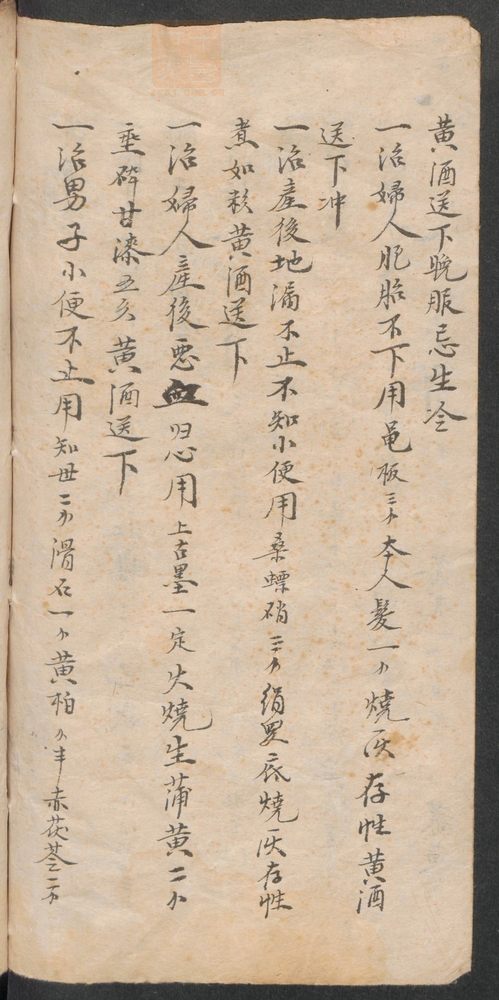 黄酒送下晚服忌生冷
一治婦人肥胎不下用龟板三个本人髮一个燒灰存性黄酒
送下冲
一治產後地漏不止不知小便用桑螵硝三个絹罗底燒灰存性
煮如 黄酒送下
一治婦人產後恶血归心用上古墨一定火燒生蒲黄二个
垂碎甘漆五分黄酒送下
一治男子小便不止用知母二个滑石一个黄柏个半赤茯苓二个